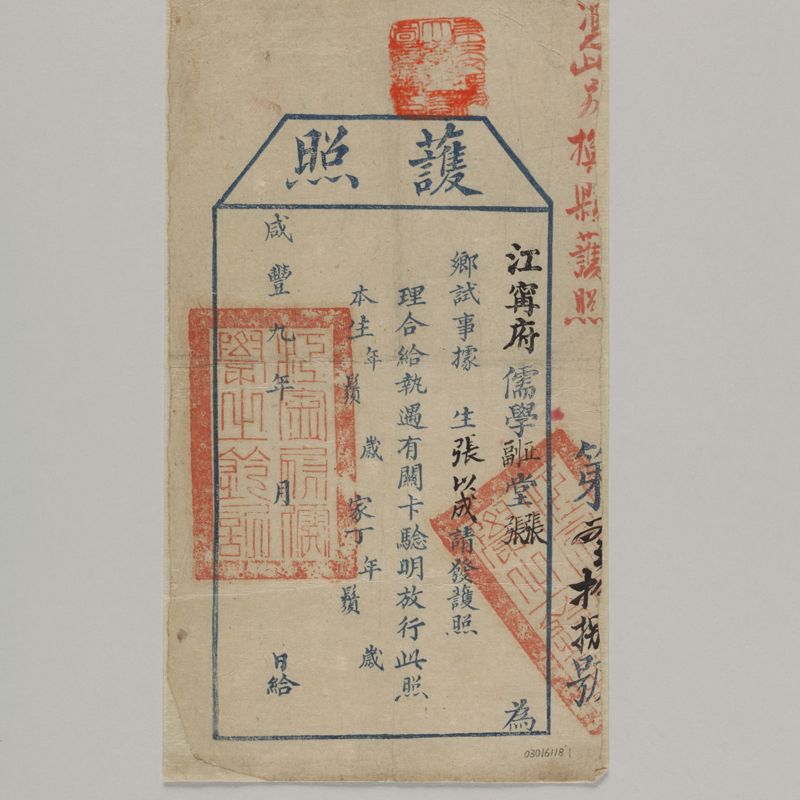 護照
江甯府儒學正副堂張張為
鄉試事據 生張以成請發護照
理合給執遇有關卡驗明放行此照
本生年 歲 家丁 年 歲
鬚 鬚
咸豐九年 月 日給
縣護照
第 拾 號
江甯府儒學之鈐記
03016118